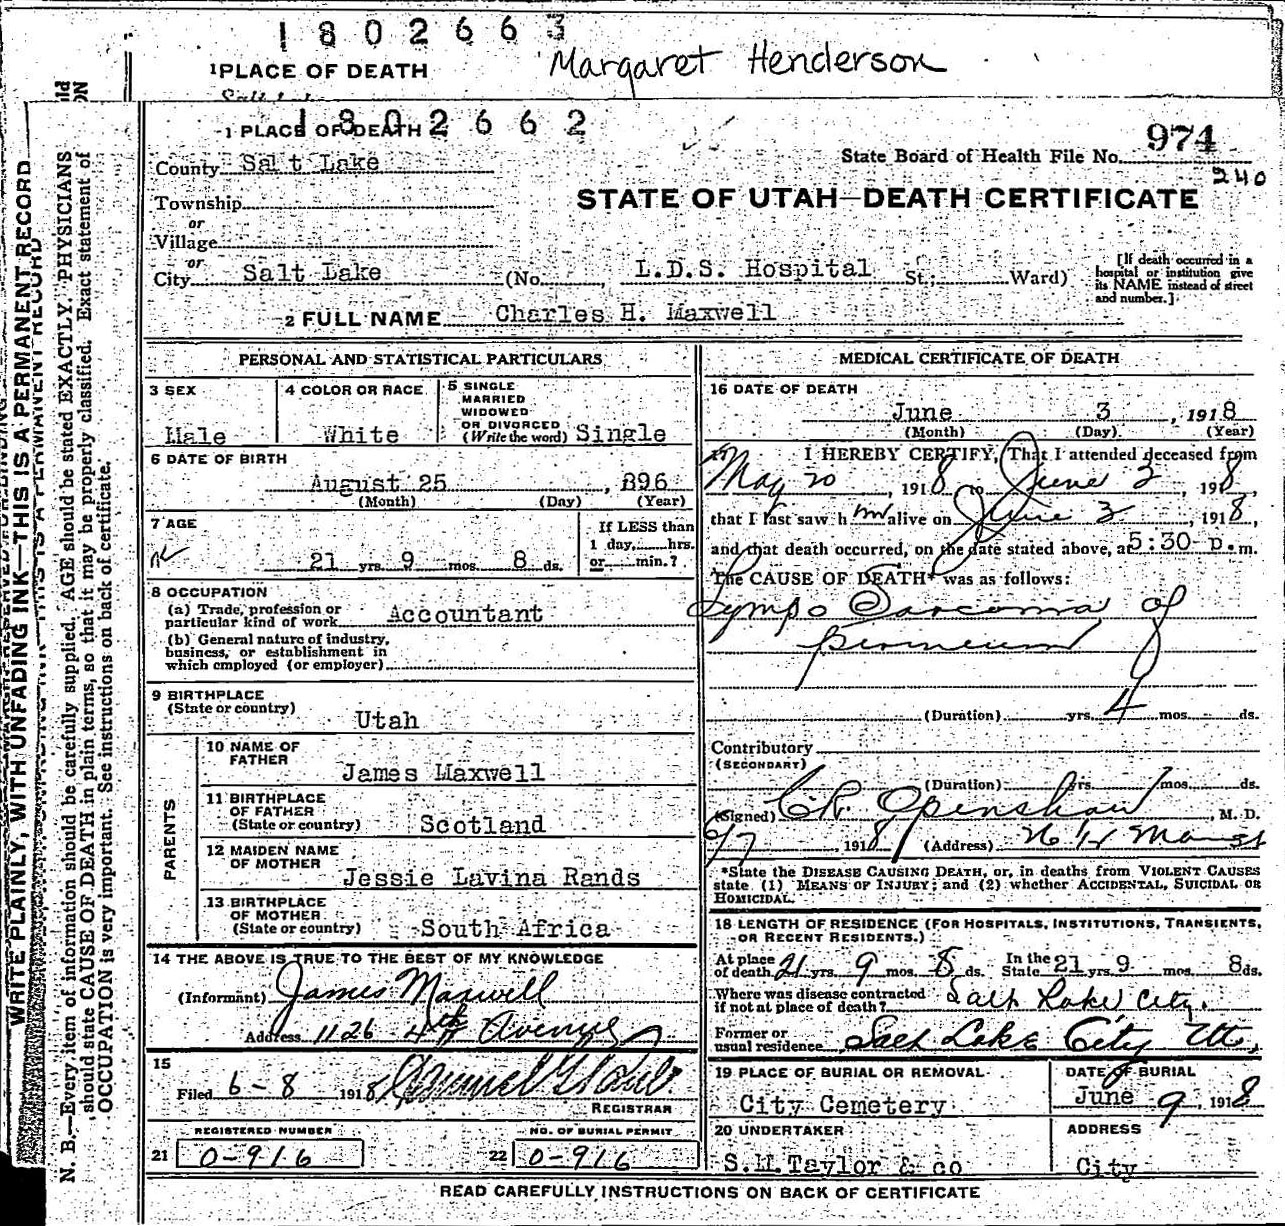 1802663
Margaret Henderson
1 PLACE OF DEATH
1802662
1 PLACE OF DEATH
974
County Salt Lake
State Board of Health File No.
240
Township
STATE OF UTAH—DEATH CERTIFICATE
or
Village
or
City Salt Lake (No. L.D.S. Hospital St.; Ward)
[If death occurred in a hospital or institution give its NAME instead of street and number.]
2 FULL NAME Charles H. Maxwell
PERSONAL AND STATISTICAL PARTICULARS
3 SEX
Male
4 COLOR OR RACE
White
5 SINGLE
MARRIED
WIDOWED
OR DIVORCED
(Write the word) Single
6 DATE OF BIRTH
August 25 , 896
(Month) (Day) (Year)
7 AGE
21 yrs. 9 mos. 8 ds.
If LESS than
1 day, hrs.
or min.?
8 OCCUPATION
(a) Trade, profession or
particular kind of work Accountant
(b) General nature of industry,
business, or establishment in
which employed (or employer)
9 BIRTHPLACE
(State or country)
Utah
PARENTS
10 NAME OF
FATHER
James Maxwell
11 BIRTHPLACE
OF FATHER
(State or country) Scotland
12 MAIDEN NAME
OF MOTHER
Jessie Lavina Rands
13 BIRTHPLACE
OF MOTHER
(State or country) South Africa
14 THE ABOVE IS TRUE TO THE BEST OF MY KNOWLEDGE
(Informant) James Maxwell
Address 1126 4th Avenue
15
Filed 6-8 1918
REGISTRAR
REGISTERED NUMBER
21 0-916
NO. OF BURIAL PERMIT
22 0-916
MEDICAL CERTIFICATE OF DEATH
16 DATE OF DEATH
June 3 , 1918
(Month) (Day) (Year)
17 I HEREBY CERTIFY, That I attended deceased from
May 20 , 1918 to June 3 , 1918
that I last saw him alive on June 3 , 1918,
and that death occurred, on the date stated above, at 5:30 p.m.
The CAUSE OF DEATH* was as follows:
Lympo Sarcoma of
perineum
(Duration) yrs. 4 mos. ds.
Contributory
(SECONDARY)
(Duration) yrs. mos. ds.
(Signed) Openshaw, M. D.
1918 (Address)
*State the DISEASE CAUSING DEATH, or, in deaths from VIOLENT CAUSES
state (1) MEANS OF INJURY; and (2) whether ACCIDENTAL, SUICIDAL OR
HOMICIDAL.
18 LENGTH OF RESIDENCE (FOR HOSPITALS, INSTITUTIONS, TRANSIENTS,
OR RECENT RESIDENTS.)
At place
of death 21 yrs. 9 mos. 8 ds. In the State 21 yrs. 9 mos. 8 ds.
Where was disease contracted
if not at place of death? Salt Lake City.
Former or
usual residence Salt Lake City Ut.
19 PLACE OF BURIAL OR REMOVAL
City Cemetery
DATE OF BURIAL
June 9, 1918
20 UNDERTAKER
S.M.Taylor & co
ADDRESS
City
READ CAREFULLY INSTRUCTIONS ON BACK OF CERTIFICATE
WRITE PLAINLY, WITH UNFADING INK—THIS IS A PERMANENT RECORD
N. B.—Every item of information should be carefully supplied. AGE should be stated EXACTLY. PHYSICIANS
should state CAUSE OF DEATH in plain terms, so that it may be properly classified. Exact statement of
OCCUPATION is very important. See instructions on back of certificate.